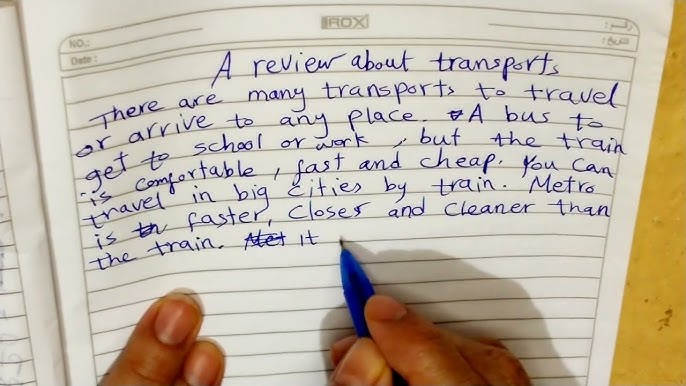 ROX
NO.:
رقم :
Date :
التاريخ :
A review about transports
There are many transports to travel
or arrive to any place. A bus to
get to school or work, but the train
is comfortable, fast and cheap. You can
travel in big cities by train. Metro
is th faster, closer and cleaner than
the train. Met it